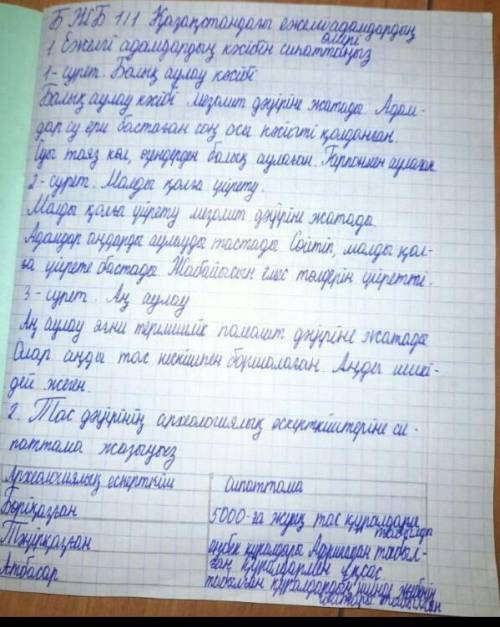 БЖБ 1/1 Қазақстандағы ежелгі адамдардың өмірі
1. Ежелгі адамдардың кәсібін сипаттаңыз
1- сурет. Балық аулау кәсібі
Балық аулау кәсібі мезолит дәуіріне жатады. Адам-
дар су ери бастаған соң осы кәсіпті қолданған.
таяз көл, өзендерден балық аулаған. Гарпонмен аулаған
2- сурет. Малды қолға үйрету.
Малды қолға үйрету мезолит дәуіріне жатады.
Адамдар аңдарды аулауды тастады Сөйтіп, малды қол-
ға үйрете бастады Жабайысын емес төлдерін үйретті.
3- сурет. Аң аулау
Аң аулау яғни термешілік палеолит дәуіріне жатады
Олар аңды тас кескішпен боршалаған. Аңды шикі-
дей жеген.
2. Тас дәуірінің археологиялық ескерткіштеріне си-
паттама жазыңыз
Археологиялық ескерткіш сипаттама
Бөріқазған 5000-ға жуық тас құралдары табылды
Тәңірқазған еңбек құралдары Африкадан табыл-
ған құралдармен ұқсас
Атбасар табылған құралдардың ішінде жебенің табылған